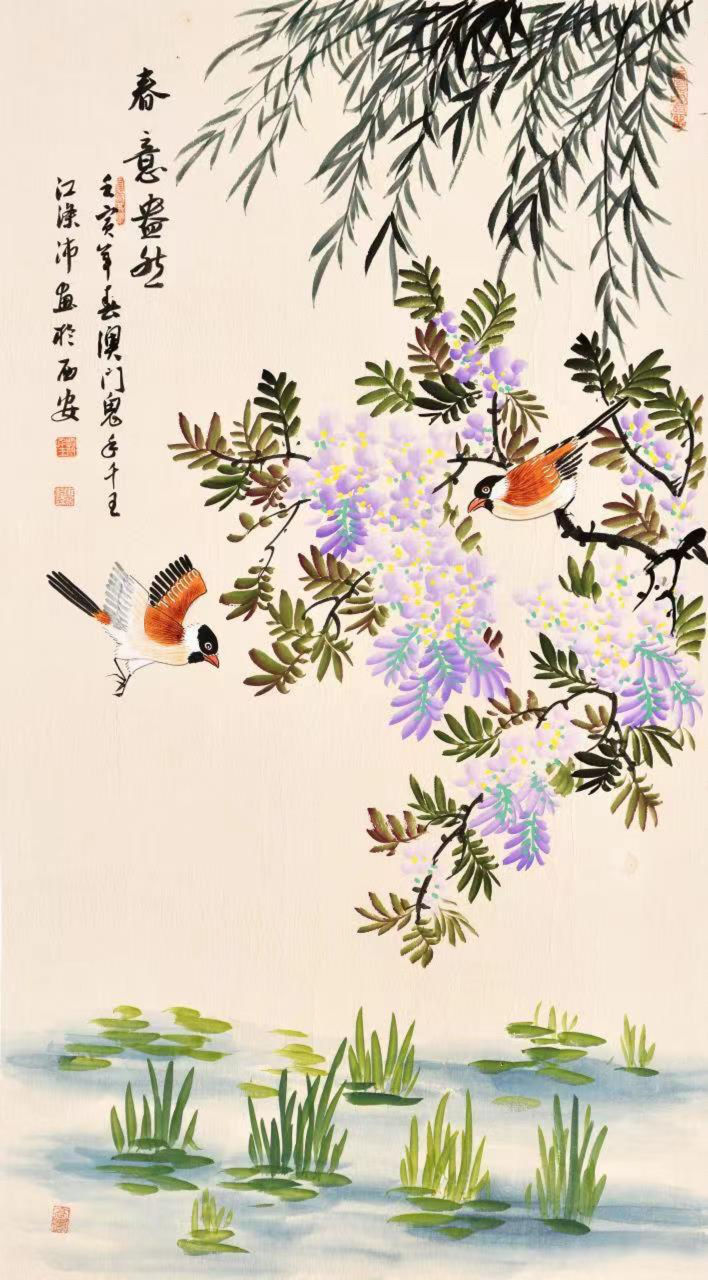 春意盎然
壬寅年春澳门鬼手千王
江深沛画於西安